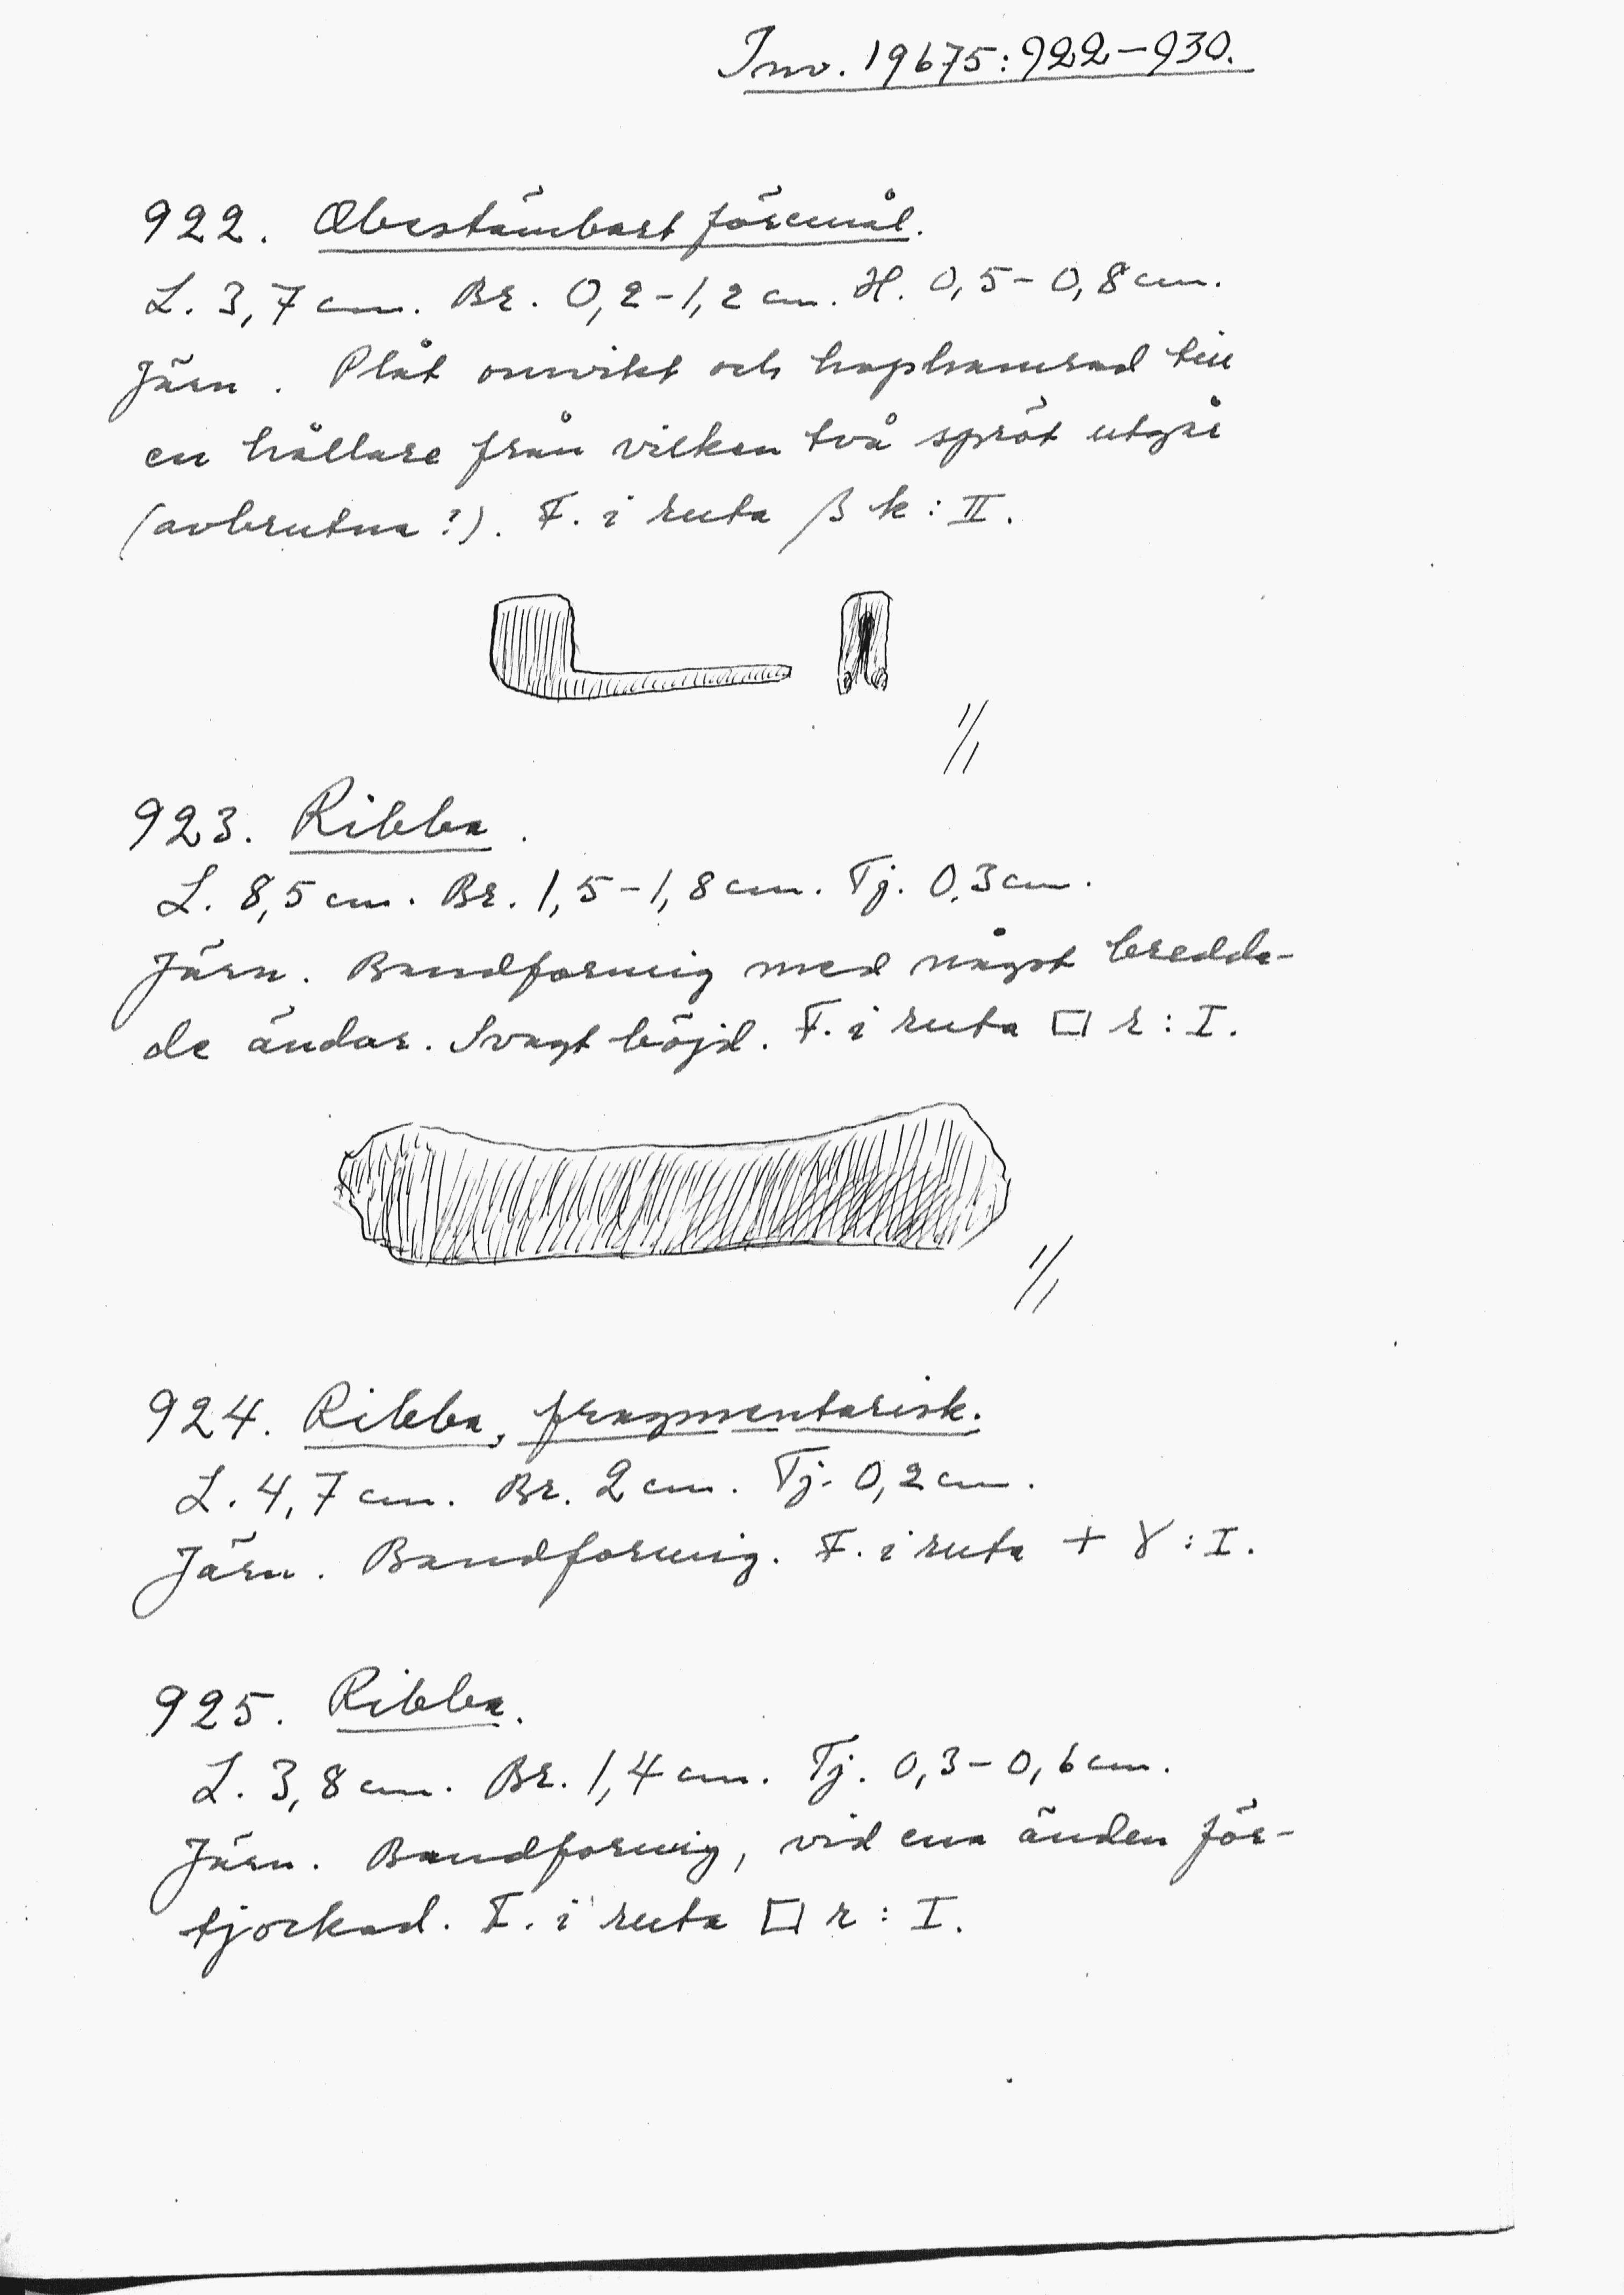 Inv. 19675:922–930.
922. Obestämbart föremål.
L. 3,7 cm. Br. 0,2–1,2 cm. H. 0,5–0,8 cm.
Järn. Plåt omvikt och hophamrad till
en hållare från vilken två spröt utgår
(avbrutna?). F. i ruta β k : II.
1/1
923. Ribba.
L. 8,5 cm. Br. 1,5–1,8 cm. Tj. 0,3 cm.
Järn. Bandformig med något bredda-
de ändar. Svagt böjd. F. i ruta □ r : I.
1/1
924. Ribba, fragmentarisk.
L. 4,7 cm. Br. 2 cm. Tj. 0,2 cm.
Järn. Bandformig. F. i ruta + γ : I.
925. Ribba.
L. 3,8 cm. Br. 1,4 cm. Tj. 0,3–0,6 cm.
Järn. Bandformig, vid ena änden för-
tjockad. F. i ruta □ r : I.